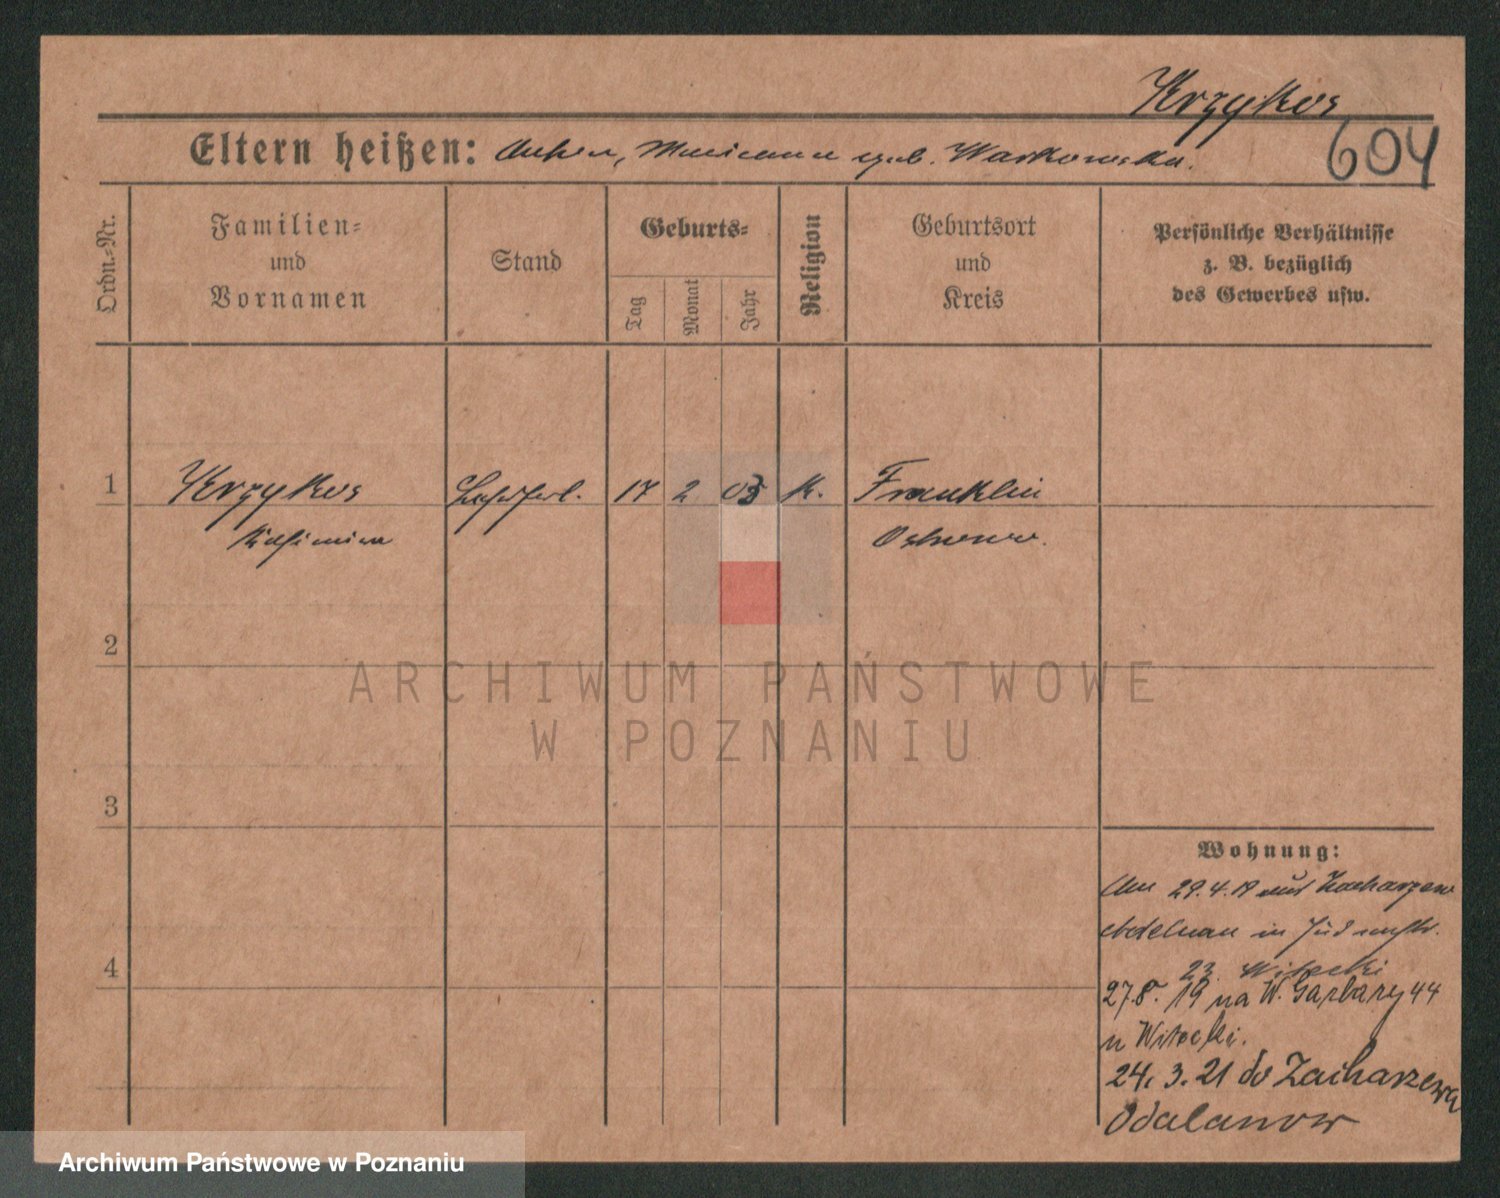 Krzykos
604
Eltern heißen: Anton, Marianna geb. Warkowska.
Ordn.-Nr.
Familien-
und
Vornamen
Stand
Geburts-
Tag
Monat
Jahr
Religion
Geburtsort
und
Kreis
Persönliche Verhältnisse
z. B. bezüglich
des Gewerbes usw.
1 Krzykos 17 2 03 K. Franklin
Kasimira Ostrowo.
2
3
4
Wohnung:
Am 29.4.19 aus Zacharzew
Adelnau in
23. Witecki
27.8. 19 na W. Garbary 44
u Witecki.
24. 3. 21 do Zacharzewa
Odalanow
ARCHIWUM PAŃSTWOWE
W POZNANIU
Archiwum Państwowe w Poznaniu